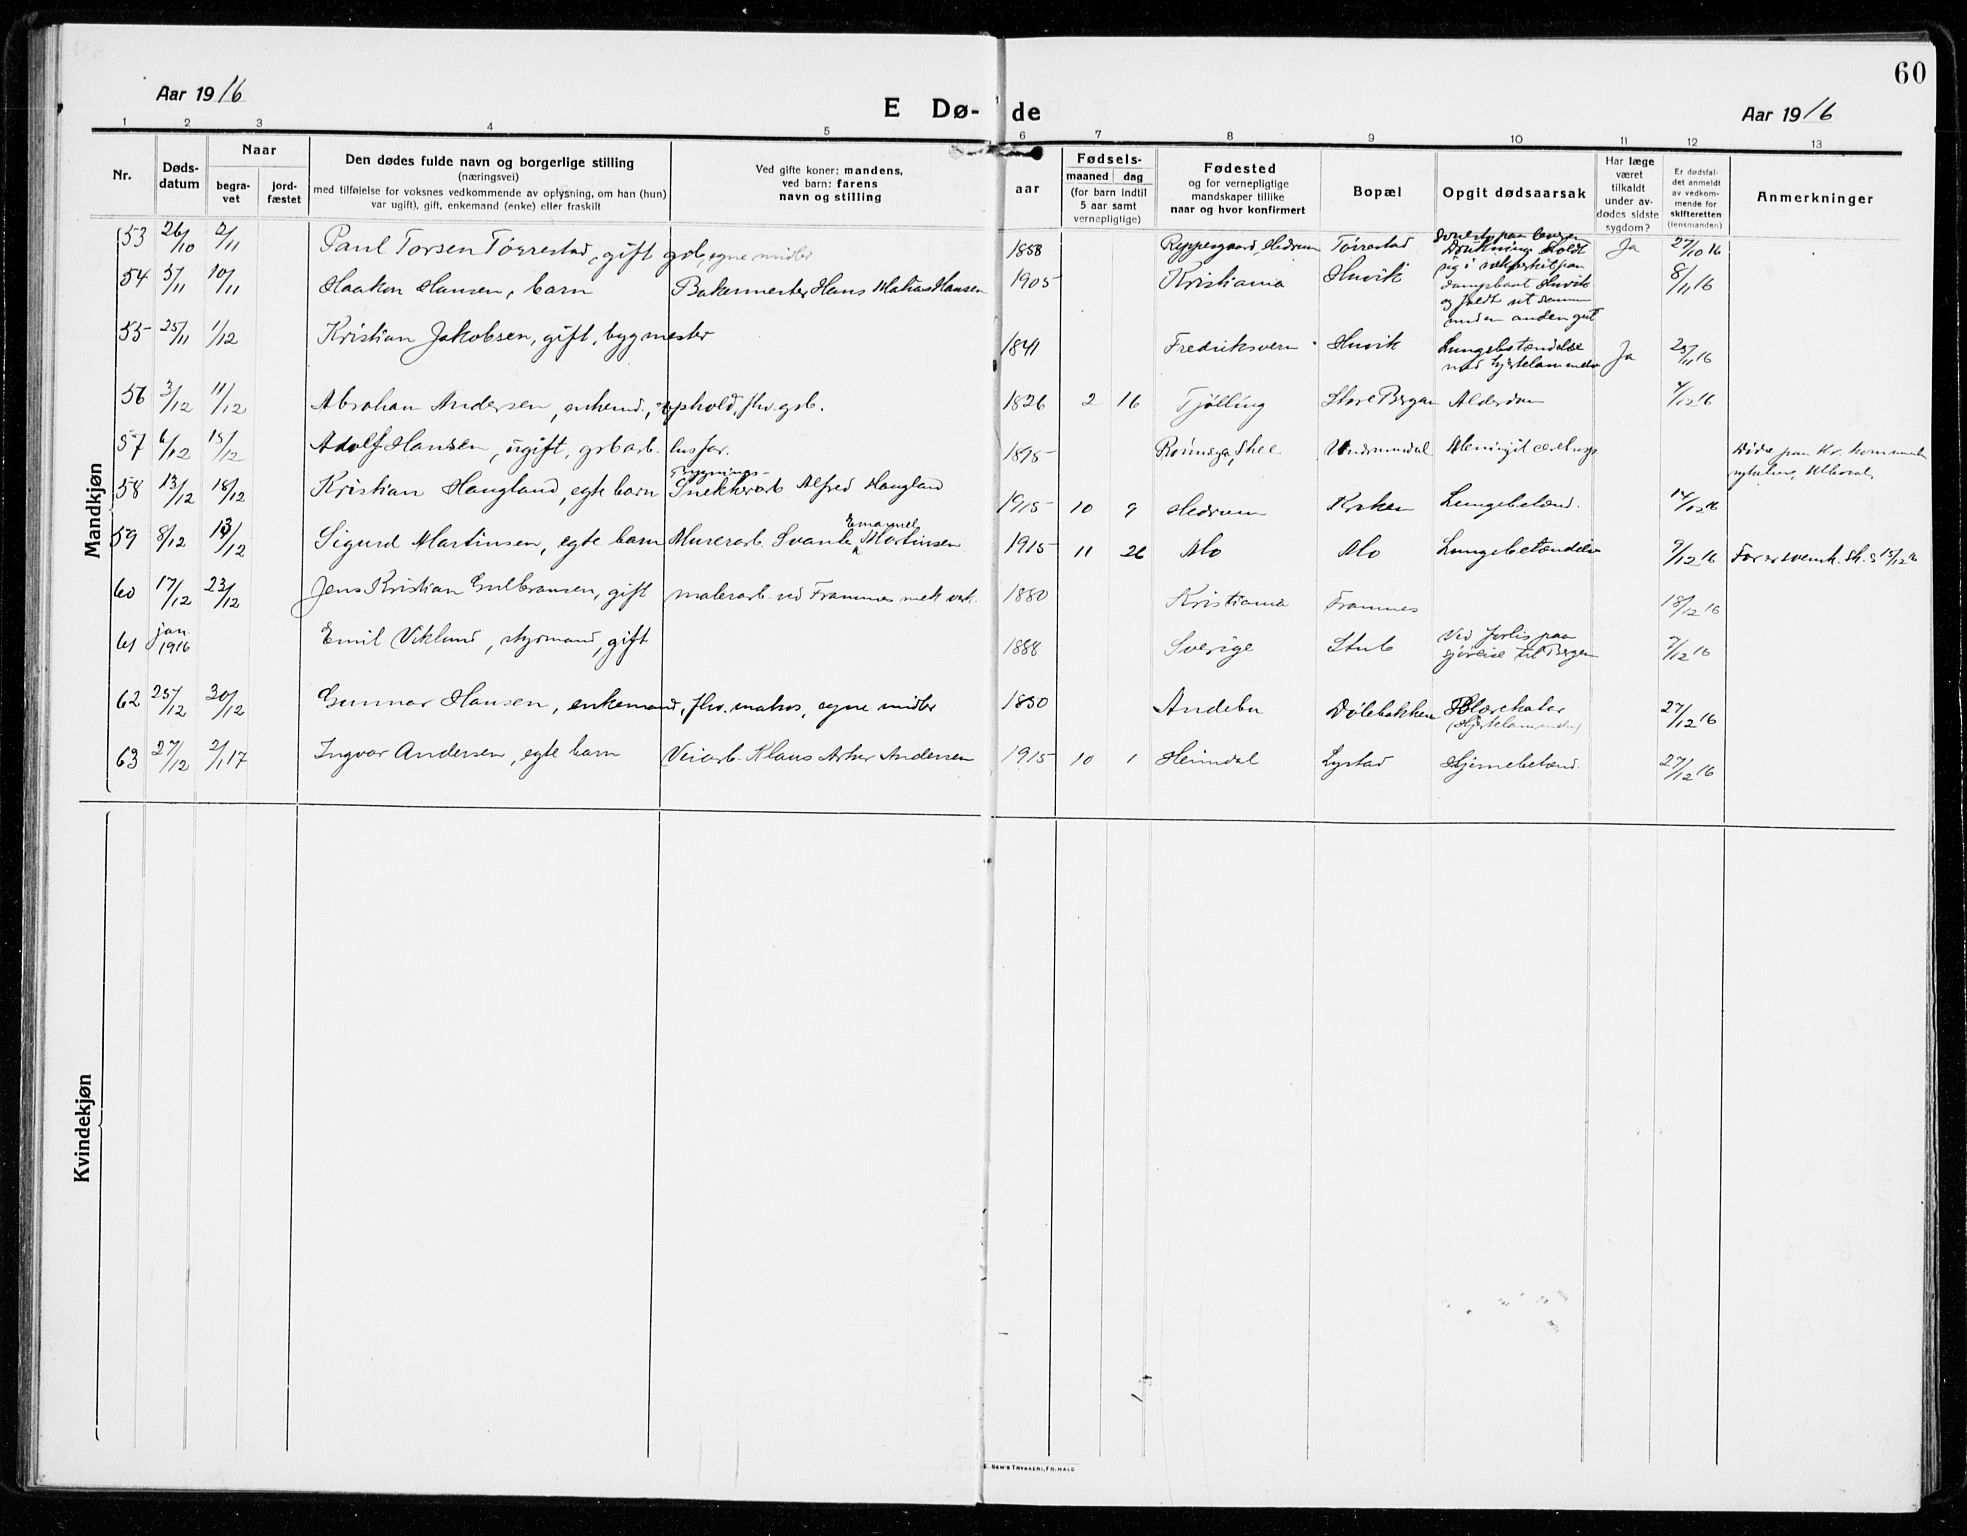 60
Aar 1916
E Dø- de
Aar 1916
1 2 3 4 5 6 7 8 9 10 11 12 13
Nr.
Døds-
datum
Naar
begra-
vet
jord-
fæstet
Den dødes fulde navn og borgerlige stilling
(næringsvei)
med tilføielse for voksnes vedkommende av oplysning, om han (hun)
var ugift), gift, enkemand (enke) eller fraskilt
Ved gifte koner: mandens,
ved barn: farens
navn og stilling
aar
Fødsels-
maaned dag
(for barn indtil
5 aar samt
vernepligtige)
Fødested
og for vernepligtige
mandskaper tillike
naar og hvor konfirmert
Bopæl
Opgit dødsaarsak
Har læge
været
tilkaldt
under av-
dødes sidste
sygdom?
Er dødsfal-
det anmeldt
av vedkom-
mende for
skifteretten
(lensmanden)
Anmerkninger
Mandkjøn
53 26/10 2/11 Paul Torsen Tørrestad, gift gbr, egne midler 1858 Hedrum Tørrestad Ja 27/10 16
54 5/11 10/11 Haakon Hansen, barn Bakermester Hans Matias Hansen 1905 Kristiania Huvik Drukning. Holdt
sig i
dampbaat Huvik
og faldt ut sammen
med en anden gut 8/11 16
55 25/11 1/12 Kristian Jakobsen, gift, bygmester 1841 Fredriksvern Huvik Lungebetændelse
med hjertelammelse Ja 25/11 16
56 3/12 11/12 Abraham Andersen, enkemd., ophold, fhv. gsb. 1826 2 16 Tjølling Store Bergan Alderdom 4/12 16
57 6/12 15/12 Adolf Hansen, ugift, gsbarb. 1895 Skee Undrumsdal Meningit cerebrosp Døde paa Kr. kommunale
sykehus, Ulleval.
58 13/12 18/12 Kristian Haugland, egte barn Bygnings-
Snekkerarb. Alfred Haugland 1915 10 9 Hedrum Kroken Lungebetænd. 14/12 16
59 8/12 13/12 Sigurd Martinsen, egte barn Murerarb. Svante Emanuel Martinsen 1915 11 26 Mo Mo Lungebetændelse 9/12 16 Far er svensk. Sk. s 15/12 16
60 17/12 23/12 Jens Kristian Gulbransen, gift malerarb. ved Framnes mek verk. 1880 Kristiania Framnes 18/12 16
61 jan.
1916 Emil Viklund, styrmand, gift 1888 Sverige Stub Ved forlis paa
sjøreise til Bergen 7/12 16
62 25/12 30/12 Gunnar Hansen, enkemand, fhv. matros, egne midler 1850 Andebu Dølebakken Blærekatar
(Hjertelammelse) 27/12 16
63 27/12 2/1 17 Ingvar Andersen, egte barn Veiarb. Klaus Arter Andersen 1915 10 1 Heimdal Lystad Hjernebetænd. 27/12 16
Kvindekjøn
E. SEM'S TRYKKERI, FR.HALD